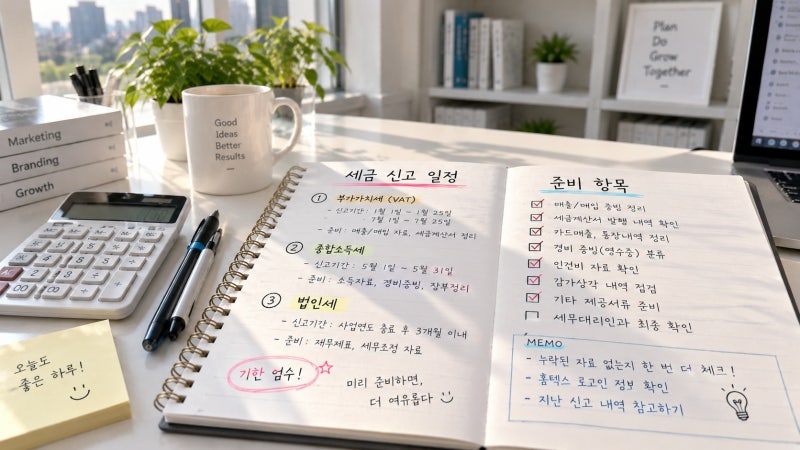 Marketing
Branding
Growth
Good
Ideas
Better
Results
Plan
Do
Grow
Together
오늘도
좋은 하루!
세금 신고 일정
① 부가가치세 (VAT)
- 신고기간 : 1월 1일 ~ 1월 25일
7월 1일 ~ 7월 25일
- 준비 : 매출/매입 자료, 세금계산서 정리
② 종합소득세
- 신고기간 : 5월 1일 ~ 5월 31일
- 준비 : 소득자료, 경비증빙, 장부정리
③ 법인세
- 신고기간 : 사업연도 종료 후 3개월 이내
- 준비 : 재무제표, 세무조정 자료
기한 엄수!
미리 준비하면,
더 여유롭다
준비 항목
매출/매입 증빙 정리
세금계산서 발행 내역 확인
카드매출, 통장내역 정리
경비 증빙(영수증) 분류
인건비 자료 확인
감가상각 내역 점검
기타 제공서류 준비
세무대리인과 최종 확인
MEMO
- 누락된 자료 없는지 한 번 더 체크!
- 홈텍스 로그인 정보 확인
- 지난 신고 내역 참고하기